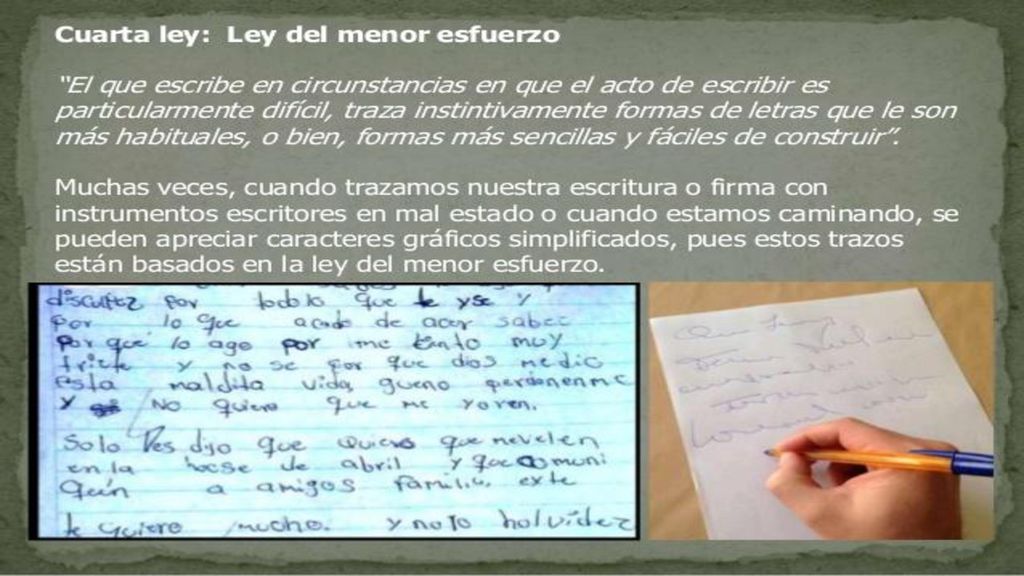 Cuarta ley:  Ley del menor esfuerzo
“El que escribe en circunstancias en que el acto de escribir es
particularmente difícil, traza instintivamente formas de letras que le son
más habituales, o bien, formas más sencillas y fáciles de construir”.
Muchas veces, cuando trazamos nuestra escritura o firma con
instrumentos escritores en mal estado o cuando estamos caminando, se
pueden apreciar caracteres gráficos simplificados, pues estos trazos
están basados en la ley del menor esfuerzo.
por que te yse y
por lo que acabo de acer
por que lo ago por me tanto muy
triste y no se por que dios me dio
esta maldita vida gueno perdonenme
y NO quiero que me yoren.
Solo les dijo que quiero que mevelen
en la de abril y que comuni
quen a amigos familia
te quiero mucho. y no to holvidez